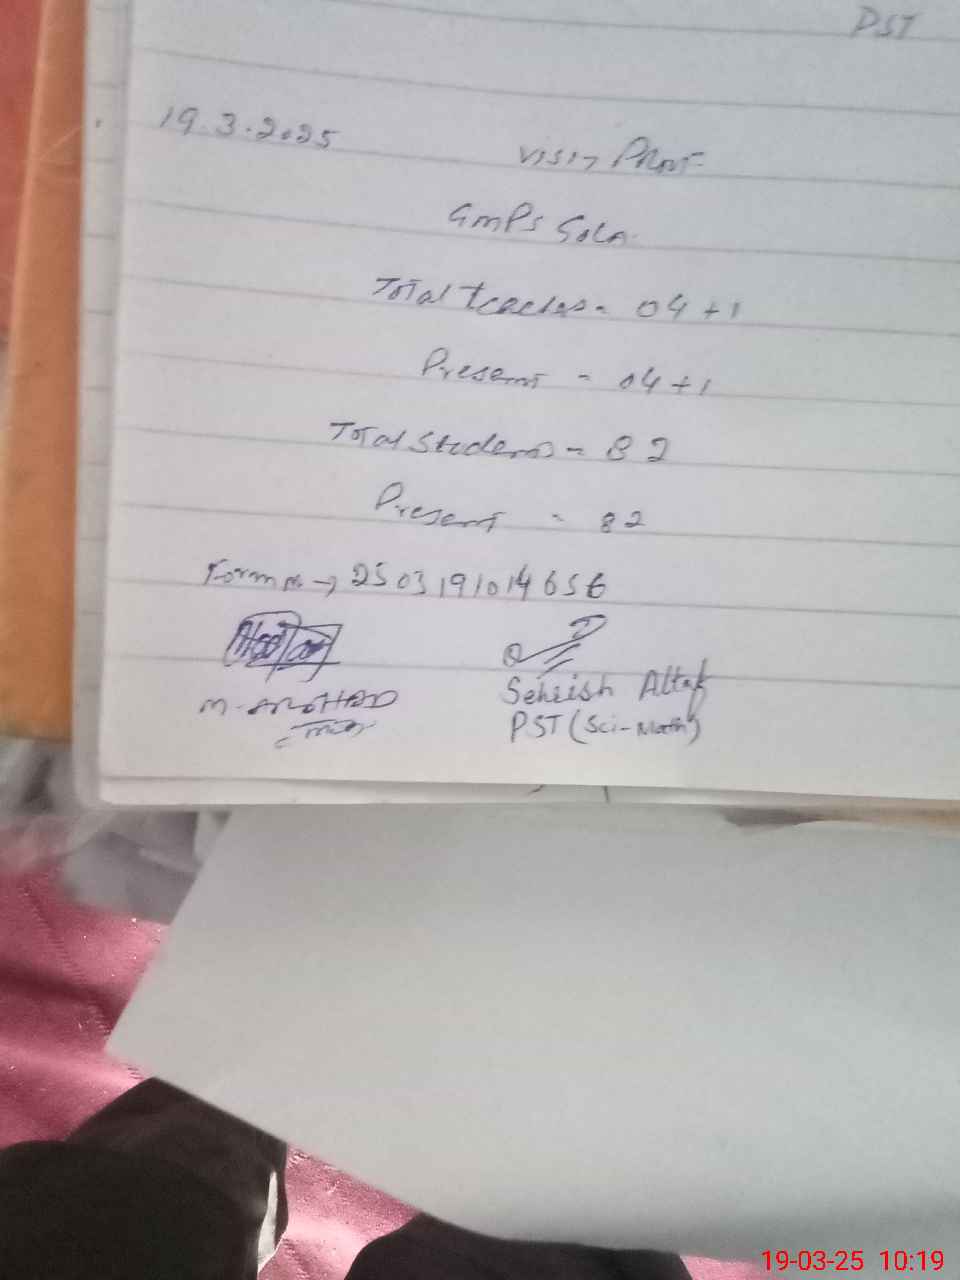 PST
19.3.2025
visit Proof
GMPS Gola
Total teachers = 04+1
Present = 04+1
Total Students = 82
Present = 82
Form → 2503191014656
Sehrish Altaf
PST (Sci-Math)
19-03-25 10:19